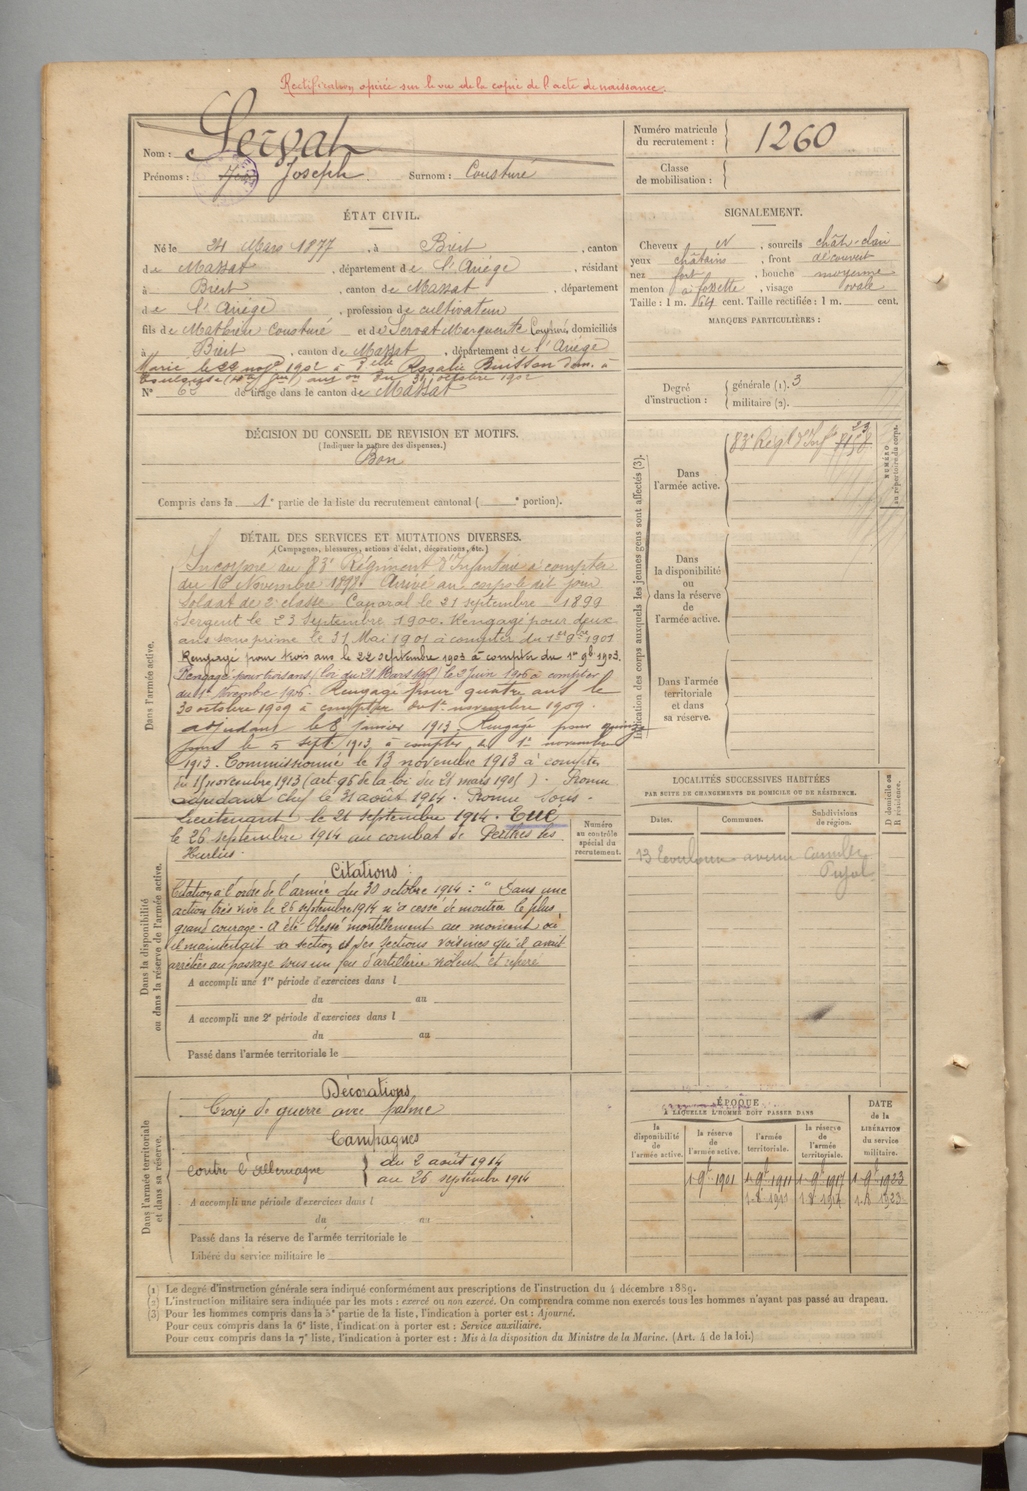 Rectification opérée sur le vu de la copie de l'acte de naissance.
Nom : Servat
Prénoms : Joseph Surnom : Cousturé
Numéro matricule du recrutement : 1260
Classe de mobilisation :
ÉTAT CIVIL.
Né le 24 Mars 1877, à Biert, canton
de Massat, département de l'Ariège, résidant
à Biert, canton de Massat, département
de l'Ariège, profession de cultivateur
fils de Mathieu Cousturé et de Servat Marguerite, domiciliés
à Biert, canton de Massat, département de l'Ariège
Marié le 22 nov 1902 à Delle Rosalie Buisson dom. à
Toulouse 31 octobre 1902
N° de tirage dans le canton de Massat
SIGNALEMENT.
Cheveux N, sourcils chât-clair
yeux châtains, front découvert
nez fort, bouche moyenne
menton à fossette, visage ovale
Taille : 1 m. 64 cent. Taille rectifiée : 1 m. cent.
MARQUES PARTICULIÈRES :
Degré d'instruction : générale (1). 3
militaire (2).
DÉCISION DU CONSEIL DE REVISION ET MOTIFS.
(Indiquer la nature des dispenses.)
Bon
Compris dans la 1e partie de la liste du recrutement cantonal ( e portion).
DÉTAIL DES SERVICES ET MUTATIONS DIVERSES.
(Campagnes, blessures, actions d'éclat, décorations, etc.)
Dans l'armée active.
Incorporé au 83e Régiment d'Infanterie à compter
du 16 Novembre 1898. Arrivé au corps le dit jour
Soldat de 2e classe. Caporal le 21 septembre 1899
Sergent le 23 Septembre 1900. Rengagé pour deux
ans sans prime le 31 Mai 1901 à compter du 1er 9bre 1901
Rengagé pour trois ans le 22 septembre 1903 à compter du 1er 9b 1903.
Rengagé pour trois ans (loi du 21 Mars 1905) le 2 Juin 1906 à compter
du 1er Novembre 1906. Rengagé pour quatre ans le
30 octobre 1909 à compter du 1er novembre 1909.
adjudant le 8 janvier 1913 Rengagé pour quinze
jours le 5 sept. 1913 à compter du 1er novembre
1913. Commissionné le 13 novembre 1913 à compter
du 15 novembre 1913 (art 95 de la loi du 21 mars 1905). Promu
adjudant chef le 31 août 1914. Promu sous-
lieutenant le 21 septembre 1914. Tué
le 26 septembre 1914 au combat de Perthes les
Hurlus.
Dans la disponibilité ou dans la réserve de l'armée active.
Citations :
Citation à l'ordre de l'armée du 30 octobre 1914 : "Dans une
action très vive le 26 septembre 1914 n'a cessé de montrer le plus
grand courage. A été blessé mortellement au moment où
il maintenait sa section et des sections voisines qu'il avait
arrêtées au passage sous un feu d'artillerie violent et repéré
A accompli une 1re période d'exercices dans l
du au
A accompli une 2e période d'exercices dans l
du au
Passé dans l'armée territoriale le
Numéro au contrôle spécial du recrutement.
Dans l'armée territoriale et dans sa réserve.
Décorations
Croix de guerre avec palme
Campagnes
contre l'Allemagne du 2 août 1914
au 26 septembre 1914
A accompli une période d'exercices dans l
du au
Passé dans la réserve de l'armée territoriale le
Libéré du service militaire le
Indication des corps auxquels les jeunes gens sont affectés (3).
NUMÉRO au répertoire du corps.
Dans l'armée active. 83e Régt d'Infie
Dans la disponibilité ou dans la réserve de l'armée active.
Dans l'armée territoriale et dans sa réserve.
LOCALITÉS SUCCESSIVES HABITÉES
PAR SUITE DE CHANGEMENTS DE DOMICILE OU DE RÉSIDENCE.
Dates. Communes. Subdivisions de région. D domicile ou R résidence.
13 Toulouse avenue Camille
Pujol
ÉPOQUE
À LAQUELLE L'HOMME DOIT PASSER DANS
la disponibilité de l'armée active.
la réserve de l'armée active.
l'armée territoriale.
la réserve de l'armée territoriale.
DATE de la LIBÉRATION du service militaire.
1 9b 1901 1 9b 1911 1 9b 1917 1 9b 1923
(1) Le degré d'instruction générale sera indiqué conformément aux prescriptions de l'instruction du 4 décembre 1889.
(2) L'instruction militaire sera indiquée par les mots : exercé ou non exercé. On comprendra comme non exercés tous les hommes n'ayant pas passé au drapeau.
(3) Pour les hommes compris dans la 5e partie de la liste, l'indication à porter est : Ajourné.
Pour ceux compris dans la 6e liste, l'indication à porter est : Service auxiliaire.
Pour ceux compris dans la 7e liste, l'indication à porter est : Mis à la disposition du Ministre de la Marine. (Art. 4 de la loi.)